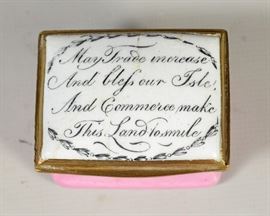 May Trade increase
And bleſs our Isle,
And Commerce make
This Land to smile